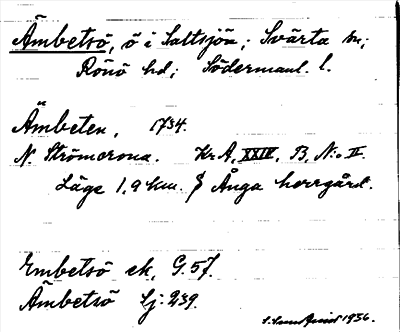 Ämbetsö, ö i Saltsjön; Svärta sn;
Rönö hd; Södermanl. l.
Ämbeten, 1734.
N. Strömcrona. Kr.A, XXIV, B, N:o II.
Läge 1,9 km. Ånga herrgård.
Embetsö ek, G. 57.
Ämbetsö Lj: 239.
1936.